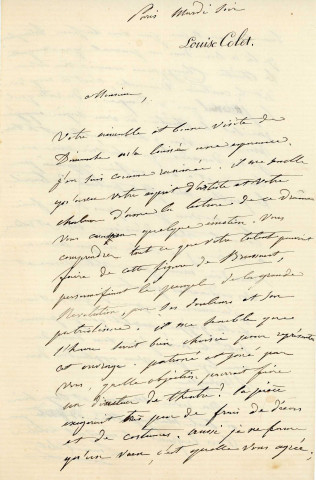 Paris Mardi soir
Louise Colet.
Monsieur,
Votre aimable et bonne visite de
Dimanche m'a laissée une espérance.
j'en suis comme ranimée. il me semble
qu'avec votre esprit d'artiste et votre
chaleur d'âme la lecture de ce Drame
vous quelque émotion. Vous
comprendrez tout ce que votre talent pourrait
faire de cette figure de
personnifiant le peuple de la grande
Révolution, par ses douleurs et son
patriotisme. il me semble que
l'heure serait bien choisie pour représenter
cet ouvrage. patroné et joué par
vous, quelle objection pourrait faire
un directeur de théâtre? la pièce
exigerait très peu de frais de décors
et de costumes. aussi je ne forme
qu'un vœu, c'est quelle vous agrée,